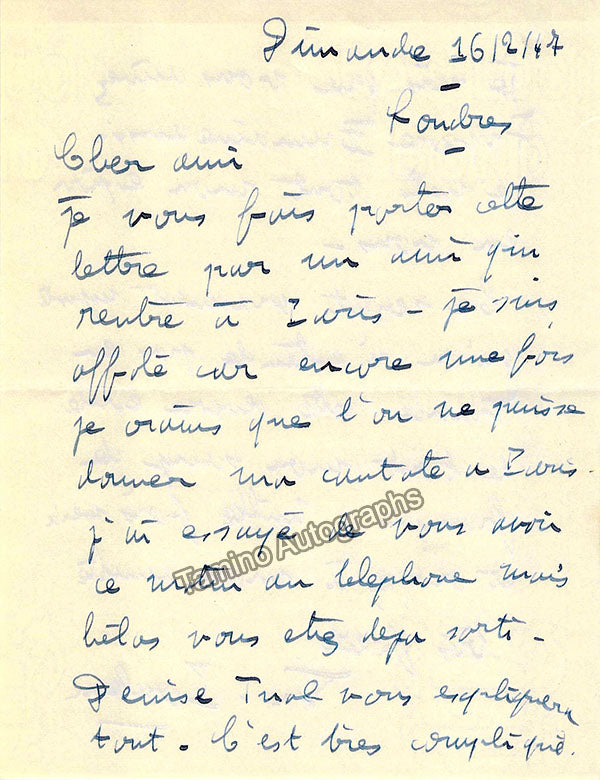 Dimanche 16/2/47
Londres
Cher ami
je vous fais porter cette
lettre par un ami qui
rentre à Paris - je suis
affolé car encore une fois
je crains que l'on ne puisse
donner ma cantate a Paris.
j'ai essayé de vous avoir
ce matin au telephone mais
hélas vous etiez deja sorti -
Denise Tual vous expliquera
tout. C'est très compliqué.
Tamino Autographs